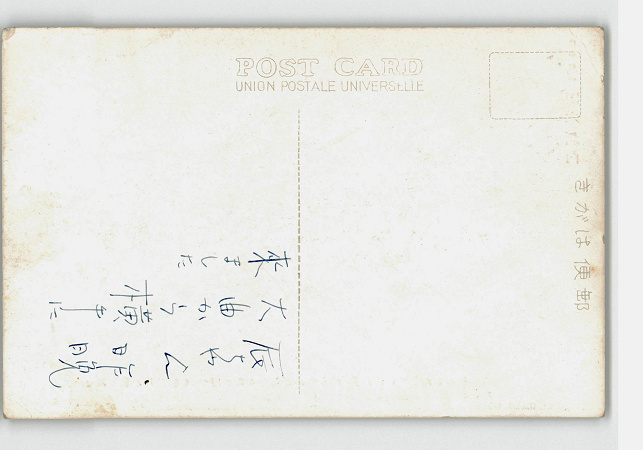 POST CARD
UNION POSTALE UNIVERSELLE
きがは便郵
昨晩
大曲から横手に
来ました